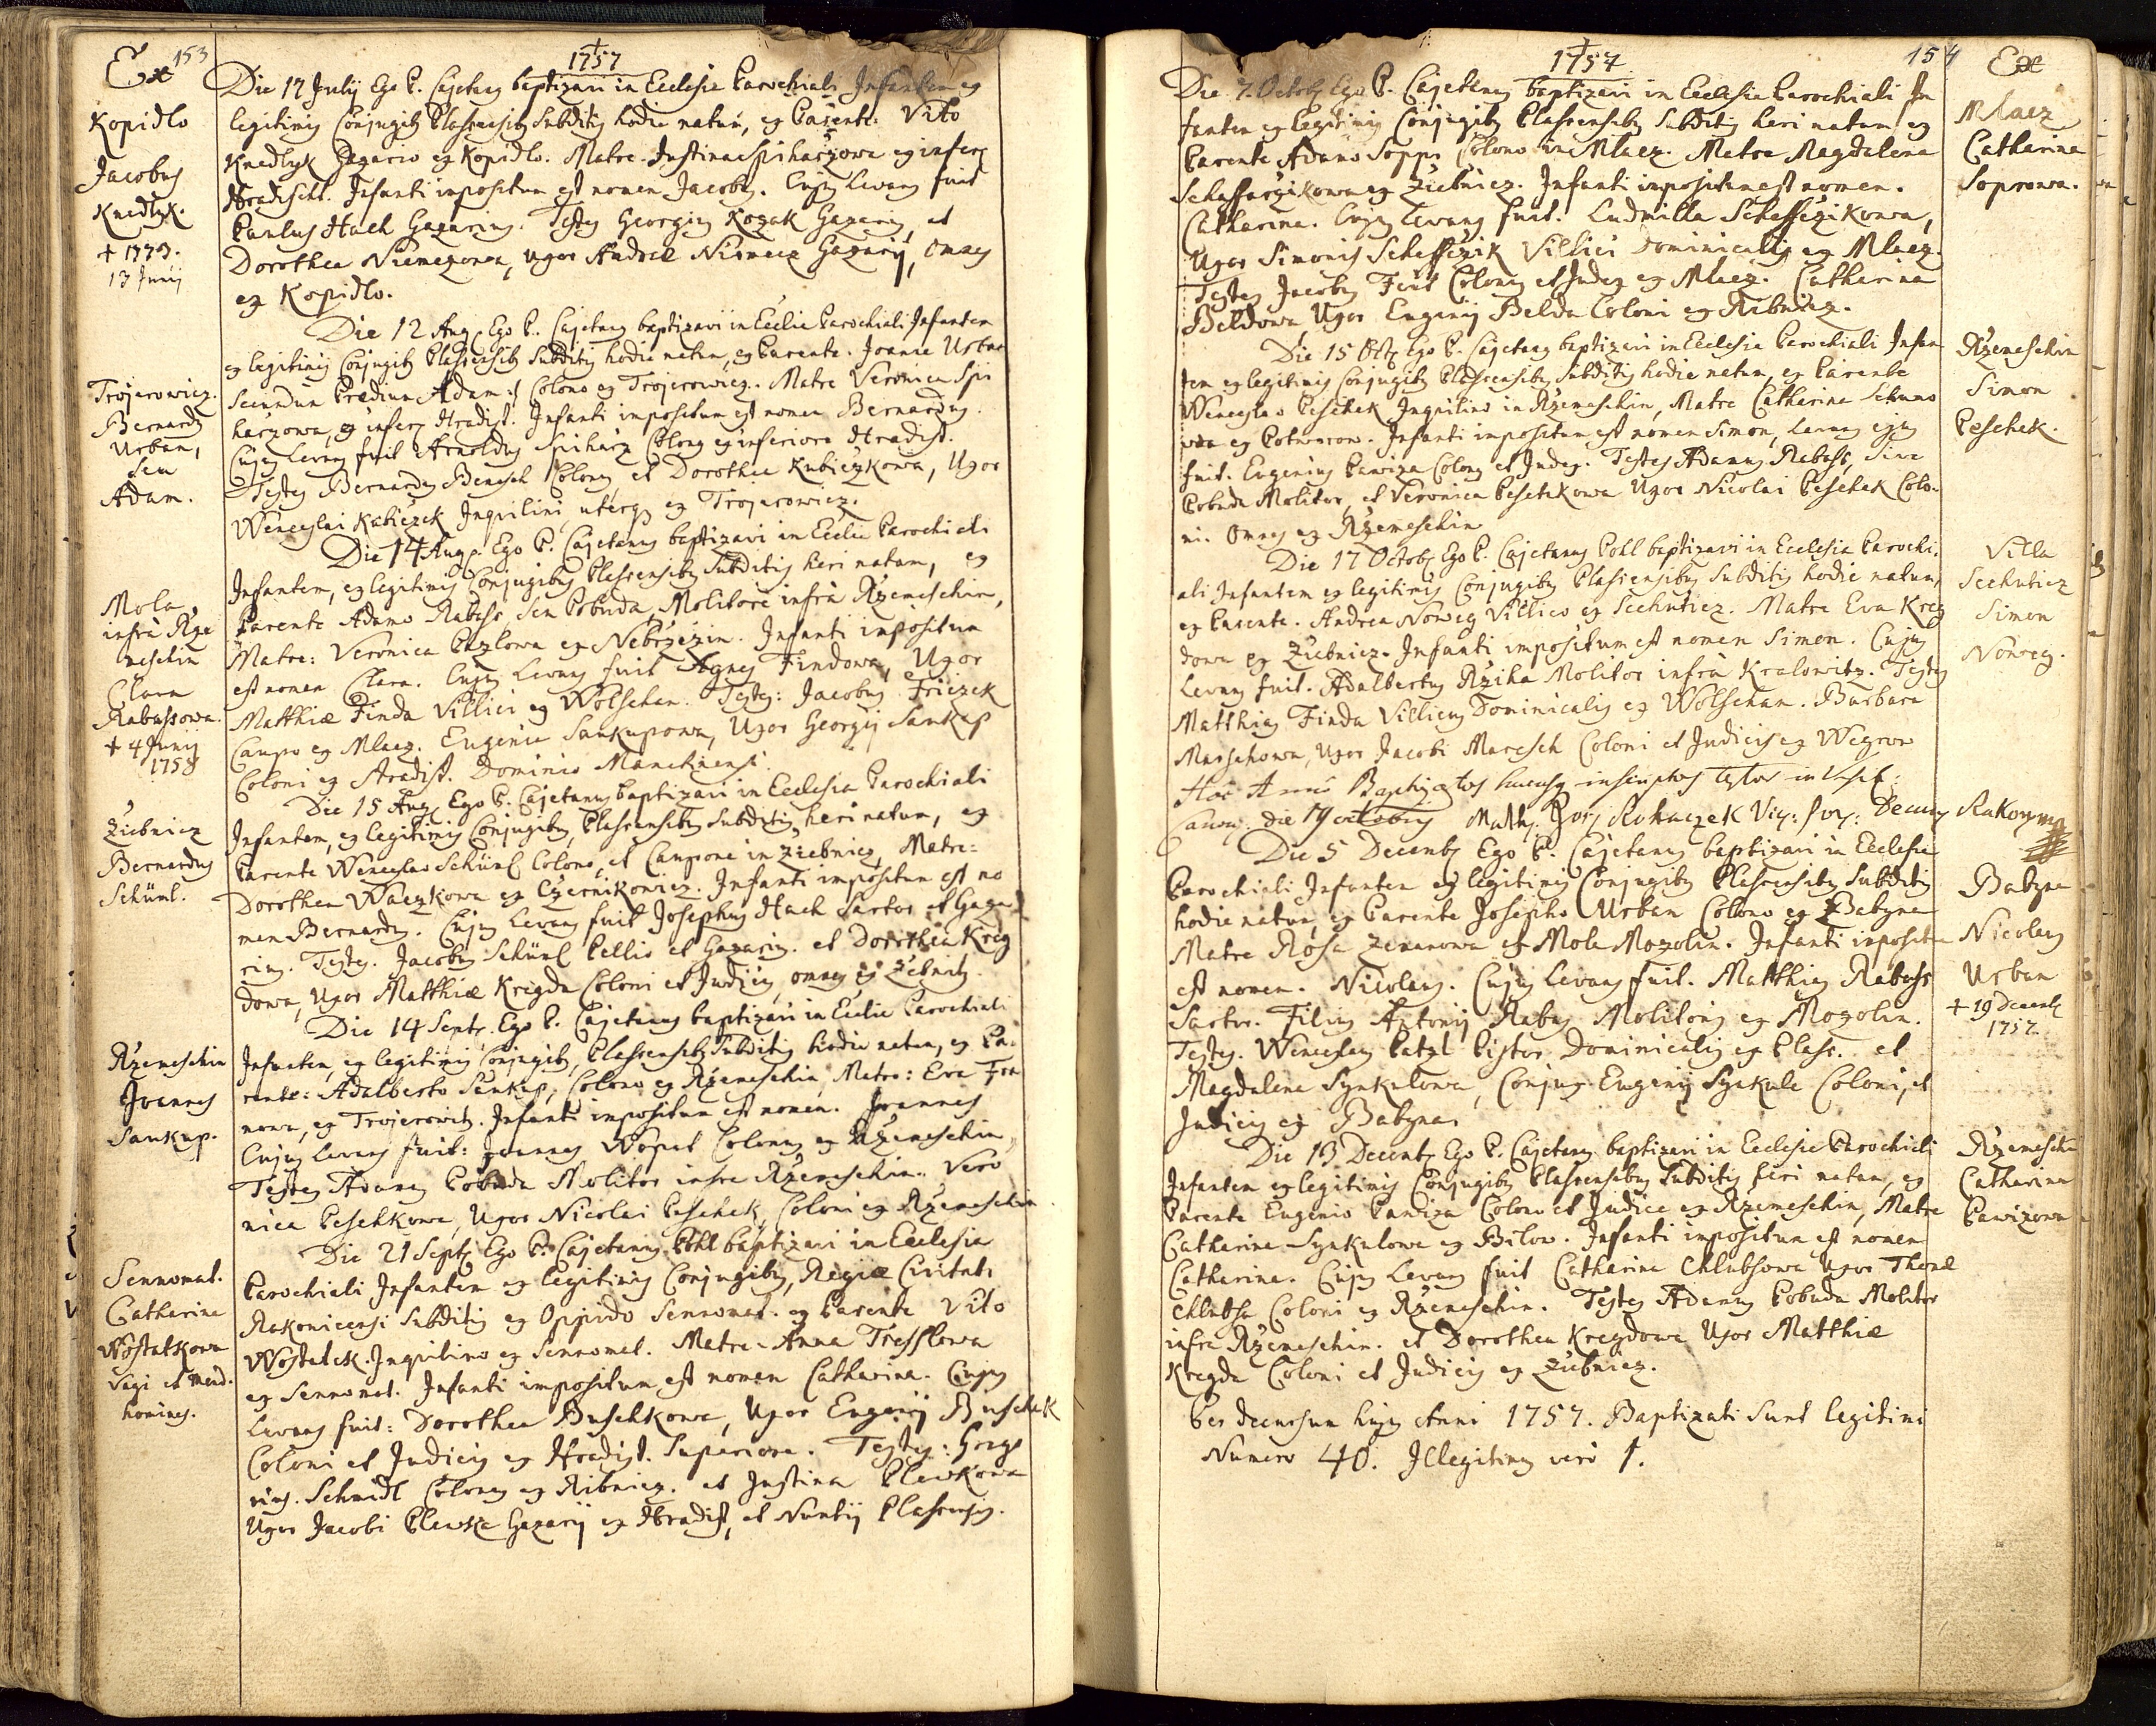 153
Ex
1757
Die 17 Julij Ego P. Cajetanus baptizavi in Ecclesia Parochiali Infantem ex
legitimis Conjugibus Plassensibus Subditis hodie natum, ex Parente: Vito
Knedlyk Gazario ex Kopidlo. Matre Justina Spiharzowa ex infer:
Hradischt. Infanti impositum est nomen Jacobus. Cujus Levans fuit
Paulus Hach Gazarius. Testes Georgius Kozak Gazarius, et
Dorothea Niemezowa, Uxor Andreæ Niemecz Gazarij, omnes
ex Kopidlo.
Kopidlo
Jacobus
Knedlyk.
+ 1773.
13 Junij
Die 12 Aug. Ego P. Cajetanus baptizavi in Ecclia Parochiali Infantem
ex legitimis Conjugibus Plassensibus Subditis hodie natum, ex Parente. Joanne Urban
secundum Prædium Adam: Colono ex Trojerowicz. Matre Veronica Spi
harzowa, ex infer: Hradist. Infanti impositum est nomen Bernardus.
Cujus Levans fuit Arnoldus Spiharz Colonus ex inferiore Hradist.
Testes Bernardus Benesch Colonus, et Dorothea Kubiczkowa, Uxor
Wenceslai Kubiczek Inquilini, uterque ex Trojerowicz.
Trojerowicz.
Bernardus
Urban,
seu
Adam.
Die 14 Aug. Ego P. Cajetanus baptizavi in Ecclia Parochiali
Infantem, ex legitimis Conjugibus Plassensibus Subditis heri natam, ex
Parente Adamo Rabass, seu Pobuda, Molitore infrà Rzemeschin,
Matre: Veronica Pazlowa ex Nebrzezin. Infanti impositum
est nomen Clara. Cujus Levans fuit Agnes Findowa, Uxor
Matthiæ Finda Villici ex Wolschan. Testes: Jacobus Friczek
Caupo ex Mlacz. Eugenia Saukupowa, Uxor Georgij Saukup
Coloni ex Hradist. Dominio Manetinensi.
Mola
infrà Rze
meschin
Clara
Rabassowa.
+ 4 Junij
1758
Die 15 Aug. Ego P. Cajetanus baptizavi in Ecclesia Parochiali
Infantem, ex legitimis Conjugibus, Plassensibus Subditis heri natum, ex
Parente Wenceslao Schüml Colono, et Caupone in Ziebnicz, Matre:
Dorothea Waczkowa ex Czernikowicz. Infanti impositum est no
men Bernardus. Cujus Levans fuit Josephus Hach Sartor et Gaza
rius. Testes. Jacobus Schüml Pellio et Gazarius. et Dorothea Kreg
dowa, Uxor Matthiæ Kregda Coloni et Judicis, omnes ex Zebnitz.
Ziebnicz
Bernardus
Schüml.
Die 14 Sept. Ego P. Cajetanus baptizavi in Ecclia Parochiali
Infantem, ex legitimis Conjugibus, Plassensibus Subditis hodie natum, ex Pa-
rente: Adalberto Saukup, Colono ex Rzemeschin, Matre: Eva Fra
nowa, ex Trojerowitz. Infanti impositum est nomen. Joannes
Cujus Levans fuit: Joannes Wopat Colonus ex Rzemeschin,
Testes Adamus Pobuda Molitor infra Rzemeschin. Vero
nica Peschkowa, Uxor Nicolai Peschek, Coloni ex Rzemeschin
Rzemeschin
Joannes
Saukup.
Die 21 Sept. Ego P. Cajetanus Pohl baptizavi in Ecclesia
Parochiali Infantem ex legitimis Conjugibus, Regiæ Civitati
Rakonicensi Subditis ex Oppido Sennomat. ex Parente Vito
Wostatek. Inquilino ex Sennomat. Matre. Anna Tresslowa
ex Sennomat. Infanti impositum est nomen Catharina. Cujus
Levans fuit: Dorothea Buschkowa, Uxor Eugenij Buschek
Coloni et Judicis ex Hradist. Superiore. Testes: Grego
rius. Schmidl Colonus ex Ribnicz. et Justina Plewkowa
Uxor Jacobi Plewka Gazarij ex Hradist, et Nuntij Plassensis.
Sennomat.
Catharina
Wostatkowa
Vagi et mend.
homines.
1757
154
Ex
Die 7. Octob. Ego P. Cajetanus baptizavi in Ecclesia Parochiali In
fantem ex legitimis Conjugibus Plassensibus Subditis heri natam ex
Parente Adamo Sopp: Colono in Mlacz. Matre Magdalena
Schaffarzikowa ex Ziebnicz. Infanti impositum est nomen.
Catharina. Cujus Levans fuit. Ludmilla Scheffczikowa,
Uxor Simonis Scheffczik Villici Dominicalis ex Mlacz.
Testes Jacobus Fent Colonus et Judex ex Mlacz. Catharina
Beldowa, Uxor Eugenij Belda Coloni ex Ribnicz.
Mlacz
Catharina
Soprowa.
Die 15 Oct. Ego P. Cajetanus baptizavi in Ecclesia Parochiali Infan
tem ex legitimis Conjugibus Plassensibus Subditis hodie natum, ex Parente
Wenceslao Peschek Inquilino in Rzemeschin, Matre Catharina Schano
wa ex Potworow. Infanti impositum est nomen Simon, Levans ejus
fuit. Eugenius Pawiza Colonus et Judex. Testes Adamus Rabass, sive
Pobuda Molitor, et Veronica Peschkowa Uxor Nicolai Peschek Colo-
ni. Omnes ex Rzemeschin
Rzemeschin
Simon
Peschek.
Die 17 Octob. Ego P. Cajetanus Pohl baptizavi in Ecclesia Parochi-
ali Infantem ex legitimis Conjugibus Plassensibus Subditis hodie natum,
ex Parente. Andrea Noweg Villico ex Sechuticz. Matre Eva Kreg
dowa ex Ziebnicz. Infanti impositum est nomen Simon. Cujus
Levans fuit. Adalbertus Rziha Molitor infrà Kralowitz. Testes
Matthias Finda Villicus Dominicalis ex Wolschan. Barbara
Marschowa, Uxor Jacobi Maresch Coloni et Judicis ex Wegrow
Villa
Sechuticz
Simon
Noweg.
Hoc Anno Baptizatos hucusq inscriptos testor in Visit:
Canon: die 19 octobris Math: Rokaczek Vic: for: Decan Rakon
Die 5 Decemb. Ego P. Cajetanus baptizavi in Ecclesia
Parochiali Infantem ex legitimis Conjugibus Plassensibus Subditis
hodie natum, ex Parente Josepho Urban Colono ex Babyna
Matre Rosa Zemanowa ex Mola Mozolin. Infanti impositum
est nomen. Nicolaus. Cujus Levans fuit. Matthias Rabass
Sartor. Filius Antonij Rabas Molitoris ex Mozolin.
Testes. Wenceslaus Patzl Pistor Dominicalis ex Plass. et
Magdalena Synkulowa, Conjux Eugenij Synkule Coloni, et
Judicis ex Babyna.
Babyna
Nicolaus
Urban
+ 19 Decemb
1757.
Die 13 Decemb. Ego P. Cajetanus baptizavi in Ecclesia Parochiali
Infantem ex legitimis Conjugibus Plassensibus Subditis heri natam, ex
Parente Eugenio Pawiza Colono et Judice ex Rzemeschin, Matre
Catharina Synkulowa ex Bilow. Infanti impositum est nomen
Catharina. Cujus Levans fuit Catharina Chlubsowa Uxor Thomæ
Chlubsa Coloni ex Rzemeschin. Testes Adamus Pobuda Molitor
infra Rzemeschin. et Dorothea Kregdowa Uxor Matthiæ
Kregda Coloni et Judicis ex Ziebnicz.
Rzemeschin
Catharina
Pawizowa
Per decursum hujus Anni 1757. Baptizati sunt legitimi
Numero 40. Illegitimus verò 1.